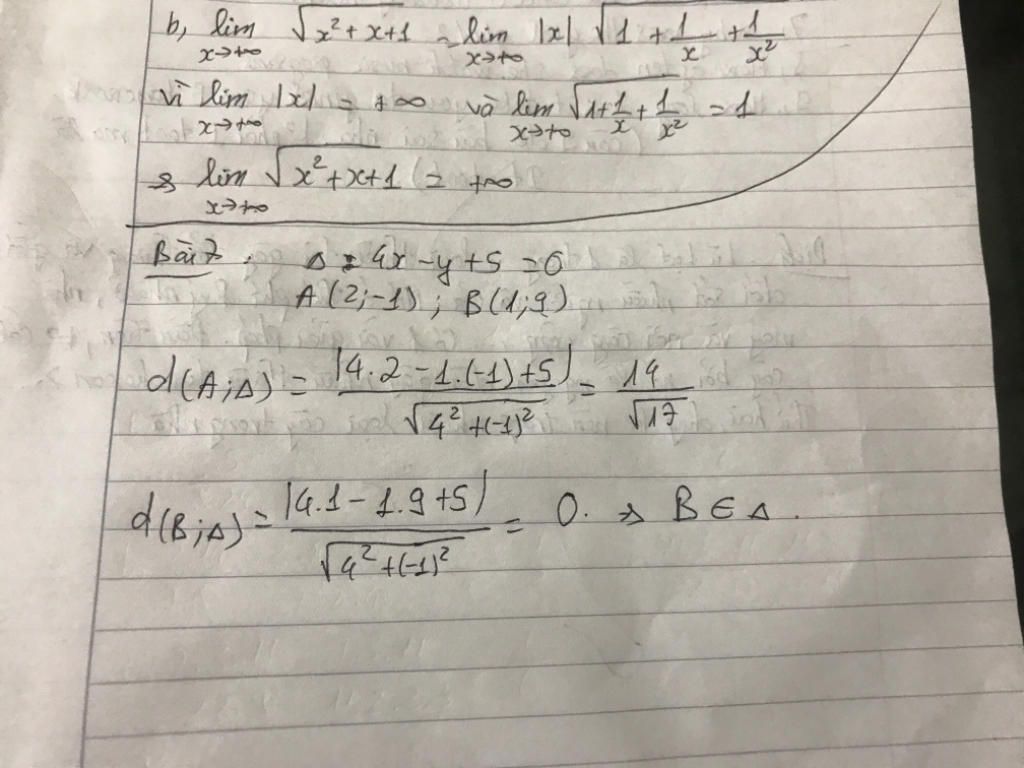 b, lim x→+∞ √(x² + x + 1) = lim x→+∞ |x| √(1 + 1/x + 1/x²)
vì lim x→+∞ |x| = +∞ và lim x→+∞ √(1 + 1/x + 1/x²) = 1
⇒ lim x→+∞ √(x² + x + 1) = +∞
Bài 7: Δ: 4x - y + 5 = 0
A(2;-1); B(1;9)
d(A;Δ) = |4.2 - 1.(-1) + 5| / √(4² + (-1)²) = 14/√17
d(B;Δ) = |4.1 - 1.9 + 5| / √(4² + (-1)²) = 0. ⇒ B ∈ Δ.